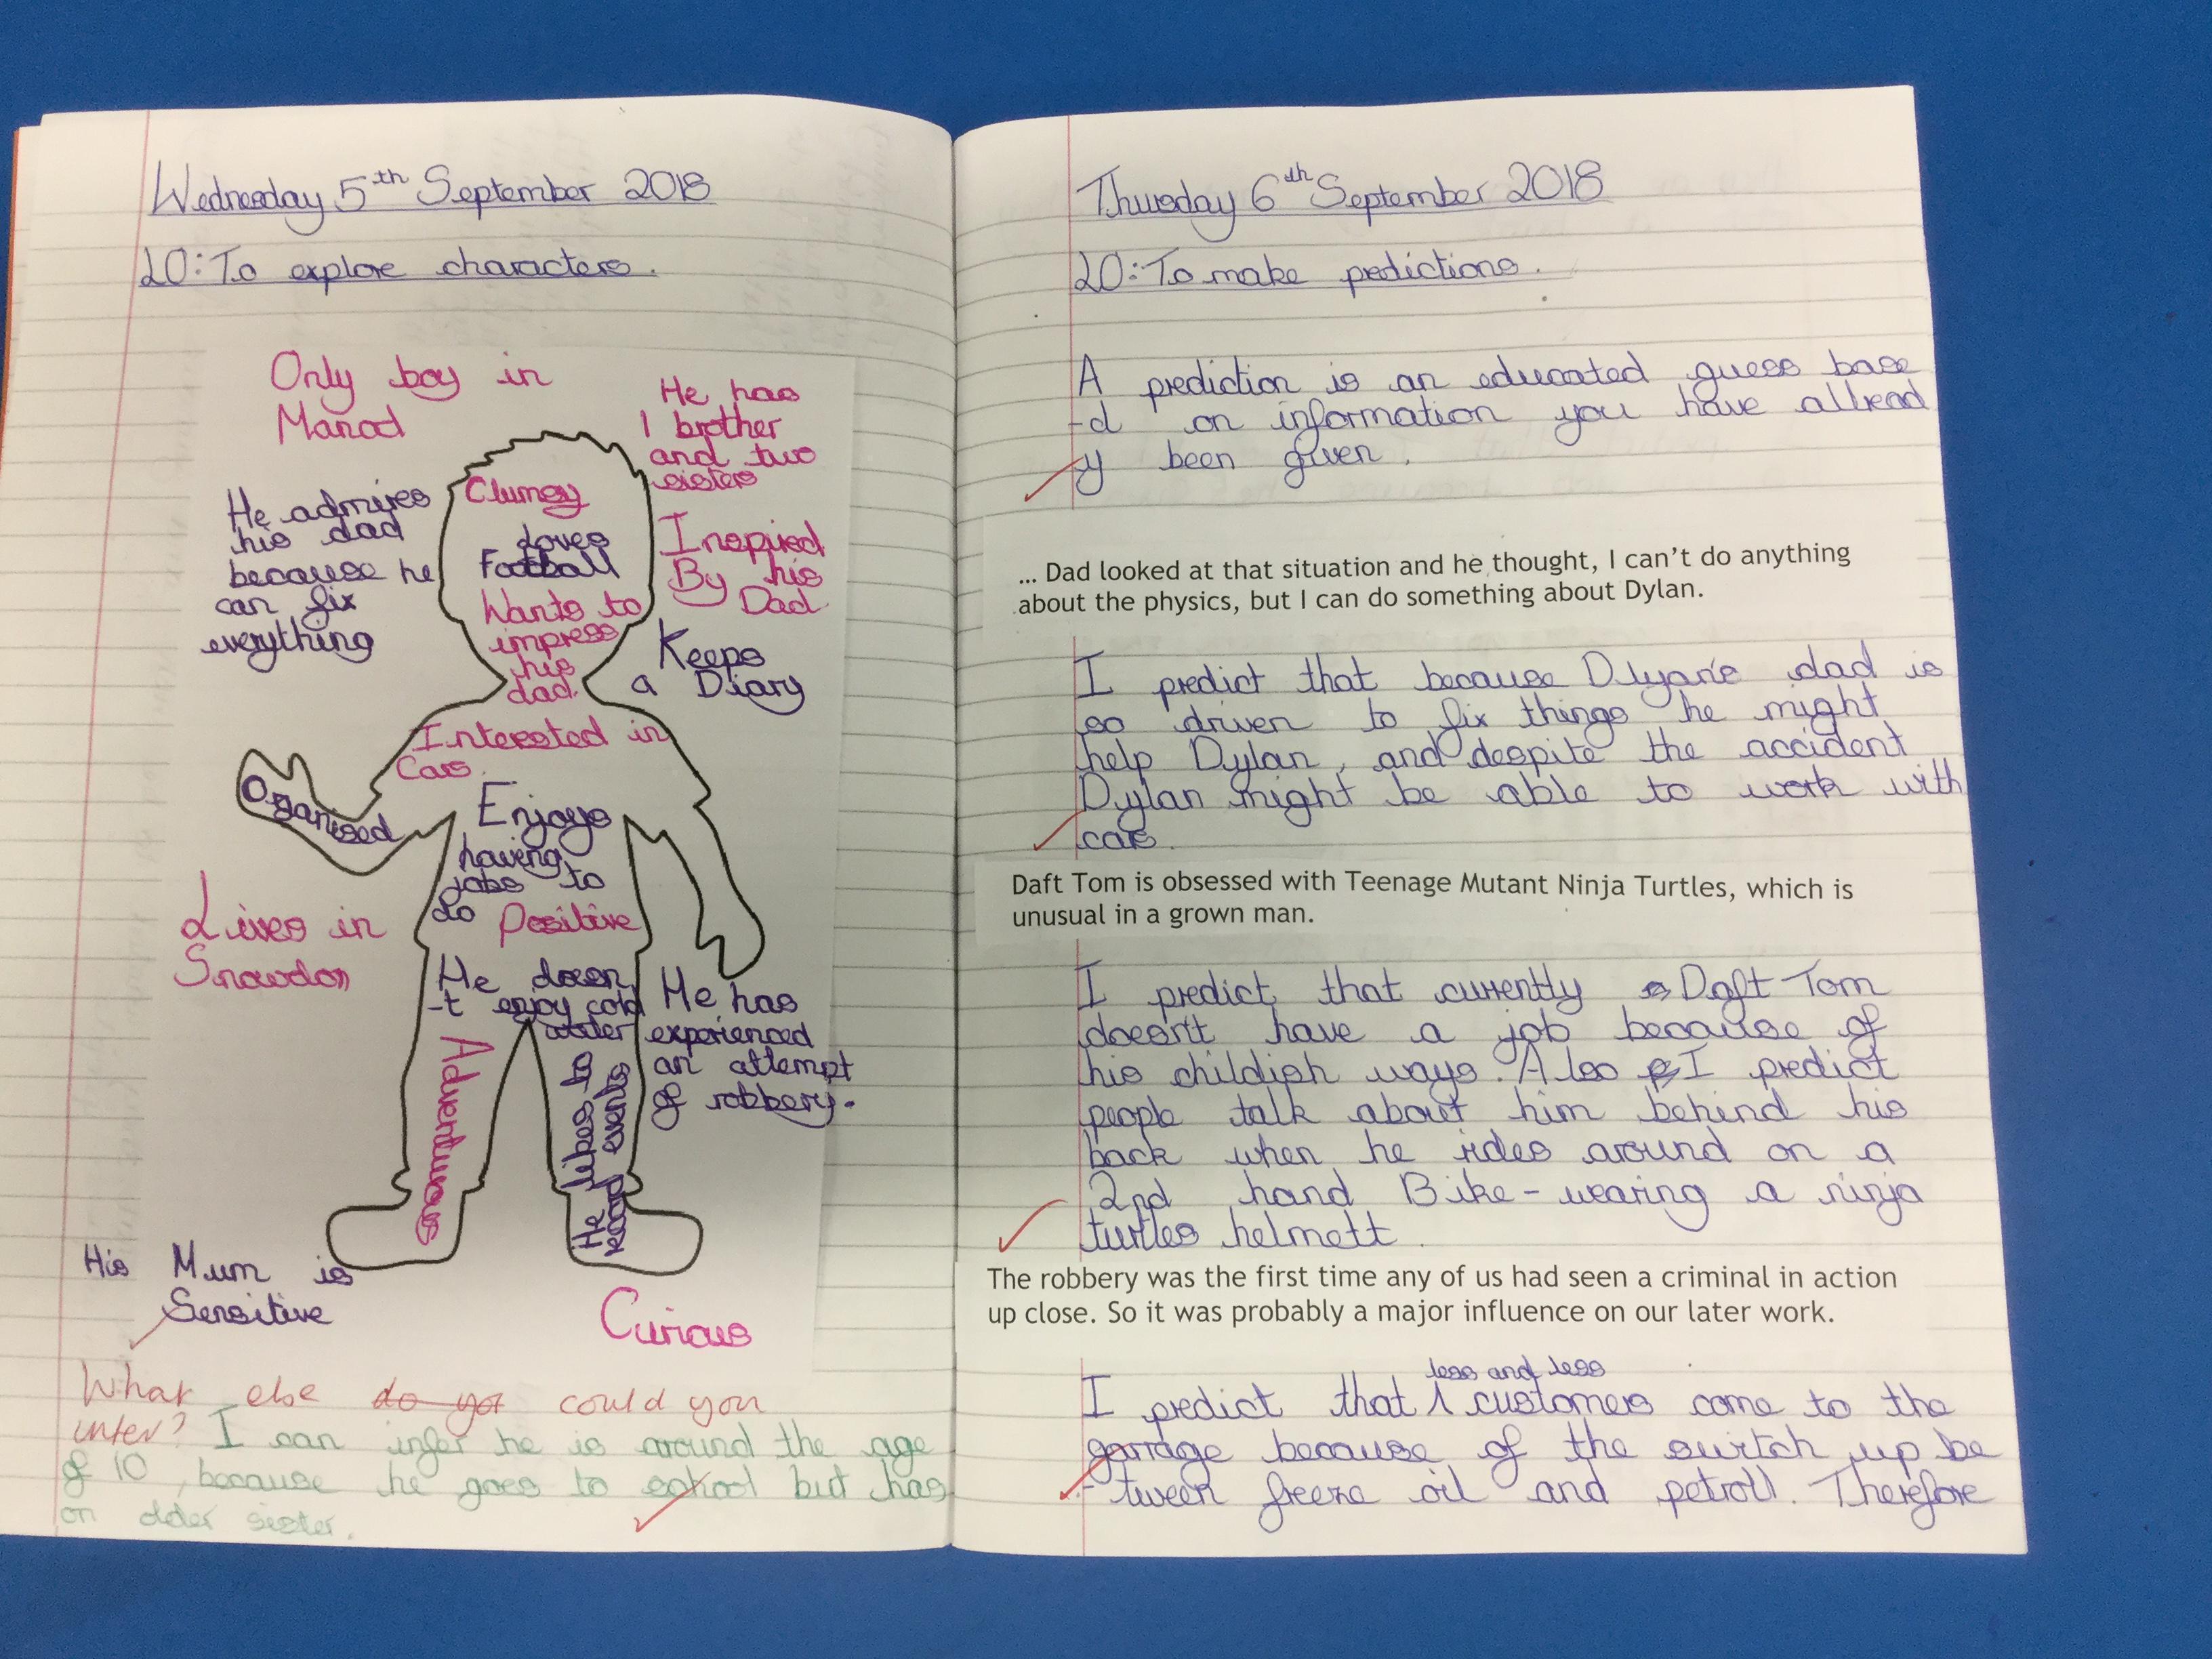 Wednesday 5th September 2018
LO: To explore characters.
Only boy in
Manod
He has
1 brother
and two
sisters
He admires
his dad
because he
can fix
everything
Clumsy
Loves
Football
Wants to
impress
his
dad.
Inspired
By his
Dad.
Keeps
a Diary
Interested in
Cars.
Organised
Enjoys
having
jobs to
do
Positive
Lives in
Snowdon
He doesn
-t enjoy cold
water
He has
experienced
an attempt
of robbery.
Adventurous
He likes to
record events
His Mum is
Sensitive
Curious
What else do yot could you
infer? I can infer he is around the age
of 10, because he goes to school but has
an older sister.
Thursday 6th September 2018
LO: To make predictions.
A prediction is an educated guess base
-d on information you have allread
y been given.
... Dad looked at that situation and he thought, I can't do anything
about the physics, but I can do something about Dylan.
I predict that because Dlyan's dad is
so driven to fix things he might
help Dylan, and despite the accident
Dylan might be able to work with
cars.
Daft Tom is obsessed with Teenage Mutant Ninja Turtles, which is
unusual in a grown man.
I predict that currently Daft Tom
doesn't have a job because of
his childish ways. Also I predict
people talk about him behind his
back when he rides around on a
2nd hand Bike - wearing a ninja
turtles helmett.
The robbery was the first time any of us had seen a criminal in action
up close. So it was probably a major influence on our later work.
less and less
I predict that ⁁ customers come to the
garrage because of the switch up be
-tween freeze oil and petroll. Therefore